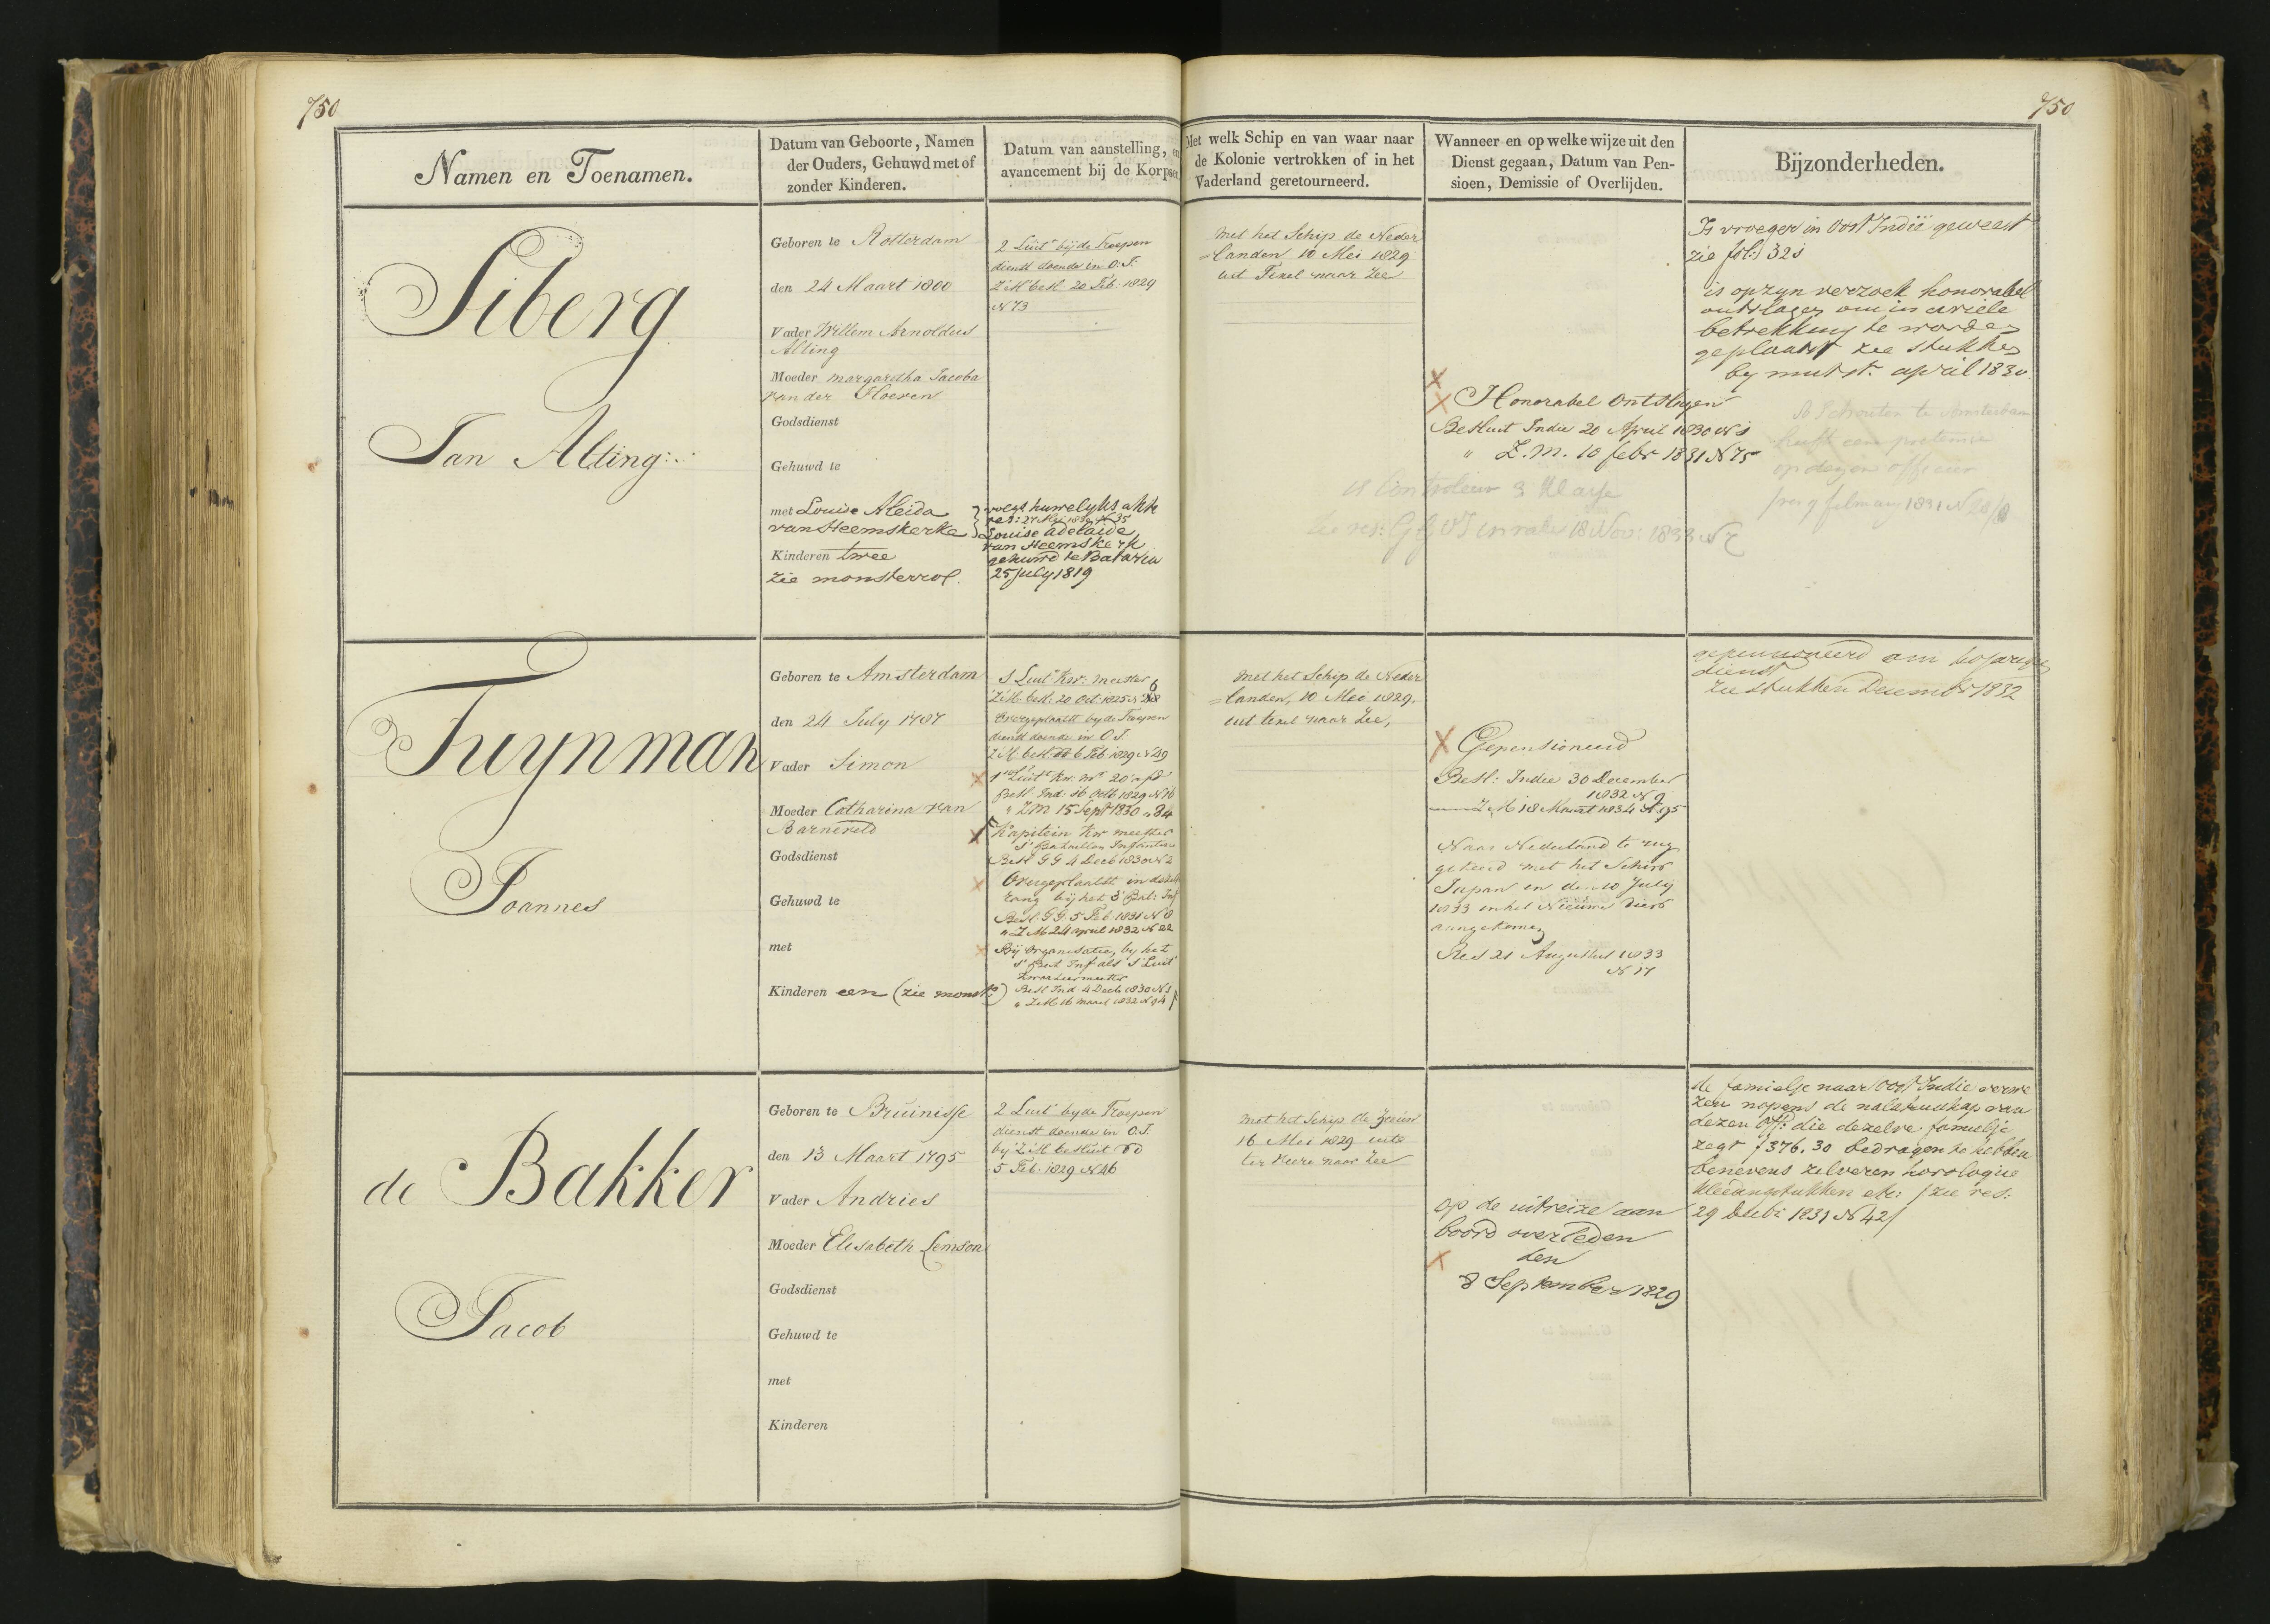 750
750
Namen en Toenamen.
Datum van Geboorte, Namen
der Ouders, Gehuwd met of
zonder Kinderen.
Datum van aanstelling, en
avancement bij de Korpsen
Met welk Schip en van waar naar
de Kolonie vertrokken of in het
Vaderland geretourneerd.
Wanneer en op welke wijze uit den
Dienst gegaan, Datum van Pen-
sioen, Demissie of Overlijden.
Bijzonderheden.
Siberg
Jan Alting
Geboren te Rotterdam
den 24 Maart 1800
Vader Willem Arnoldus
Alting
Moeder margaretha Jacoba
van der Hoeven
Godsdienst
Gehuwd te
met Louise Aleida
van Heemskerke
Kinderen twee
zie monsterrol.
2 Luitt bij de Troepen
dienst doende in O: I:
Z:M: besl. 20 Feb. 1829
N 73
volgt huwelyks akte
res: 27 1830 N 35
Louise adelaide
van Heemskerk
gehuwd te Batavia
25 july 1819
Met het Schip de Neder
=landen 10 Mei 1829
uit Texel naar Zee
Honorabel Ontslagen
Besluit Indie 20 April 1830 N 1
" Z. M. 10 febr 1831 N 75
is Controleur 3 Klasse
zie res: 18 Nov: 1833 N
Is vroeger in Oost Indië geweest
zie fol: 321
is op zyn verzoek honorabel
ontslagen om in civiele
betrekking te worden
geplaatst zie stukken
by mutst. april 1830
Schouten te Amsterdam
heeft een pretensie
op dezen officier
9 february 1831 N
Tuynman
Joannes
Geboren te Amsterdam
den 24 July 1787
Vader Simon
Moeder Catharina van
Barneveld
Godsdienst
Gehuwd te
met
Kinderen een (zie monstr)
1 Luitt Kw: meester
Z:M: besl: 20 Oct: 1825 N
Overgeplaatst by de Troepen
dienst doende in O I.
Z:M. besl 6 Feb 1829 N 49
1e Luitt Kw. Mr 20 afd
Besl. Ind: 16 Octb 1829 N 16
" Z M 15 Sept 1830 " 84
Kapitein Kw meester
1e Bataillon Infanterie
Besl G G 4 Decb 1830 N 2
Overgeplaatst in dezelf
rang bij het 3e Bat: Inf
Besl: G G. 5 Feb 1831 N 8
" Z M 24 april 1832 N 22
Bij organisatie, by het
1e Bat Inf als 1 Luitt
Kwartiermeester
Besl Ind 4 Decb 1830 N 1
" Z M 16 maart 1832 N 94
Met het Schip de Neder
=landen, 10 Mei 1829.
uit texel naar Zee,
Gepensioneerd
Besl: Indie 30 December
1832 N 9
Z M 18 Maart 1834 N 95
Naar Nederland te rug
gekeerd met het Schip
Japan en den 10 July
1833 in het Nieuwe Diep
aangekomen
Res 21 Augustus 1833
N 17
gepensioneerd om 20 jarigen
dienst
zie stukken December 1832
de Bakker
Jacob
Geboren te Bruinisse
den 13 Maart 1795
Vader Andries
Moeder Elisabeth Lemson
Godsdienst
Gehuwd te
met
Kinderen
2 Luitt by de Troepen
dienst doende in O.I.
by Z:M besluit dd
5 Feb. 1829 N 46
Met het Schip de Zeeuw
16 Mei 1829 uit
ter Veere naar Zee
op de uitreize aan
boord overleden
den
8 September 1829
de familje naar Oost Indie verwe
zen nopens de nalatenschap van
dezen Off: die dezelve familje
zegt f 376.30 bedragen te hebben
benevens zilveren horologie
kleedingstukken etc: (zie res:
29 Decbr 1831 N 42)